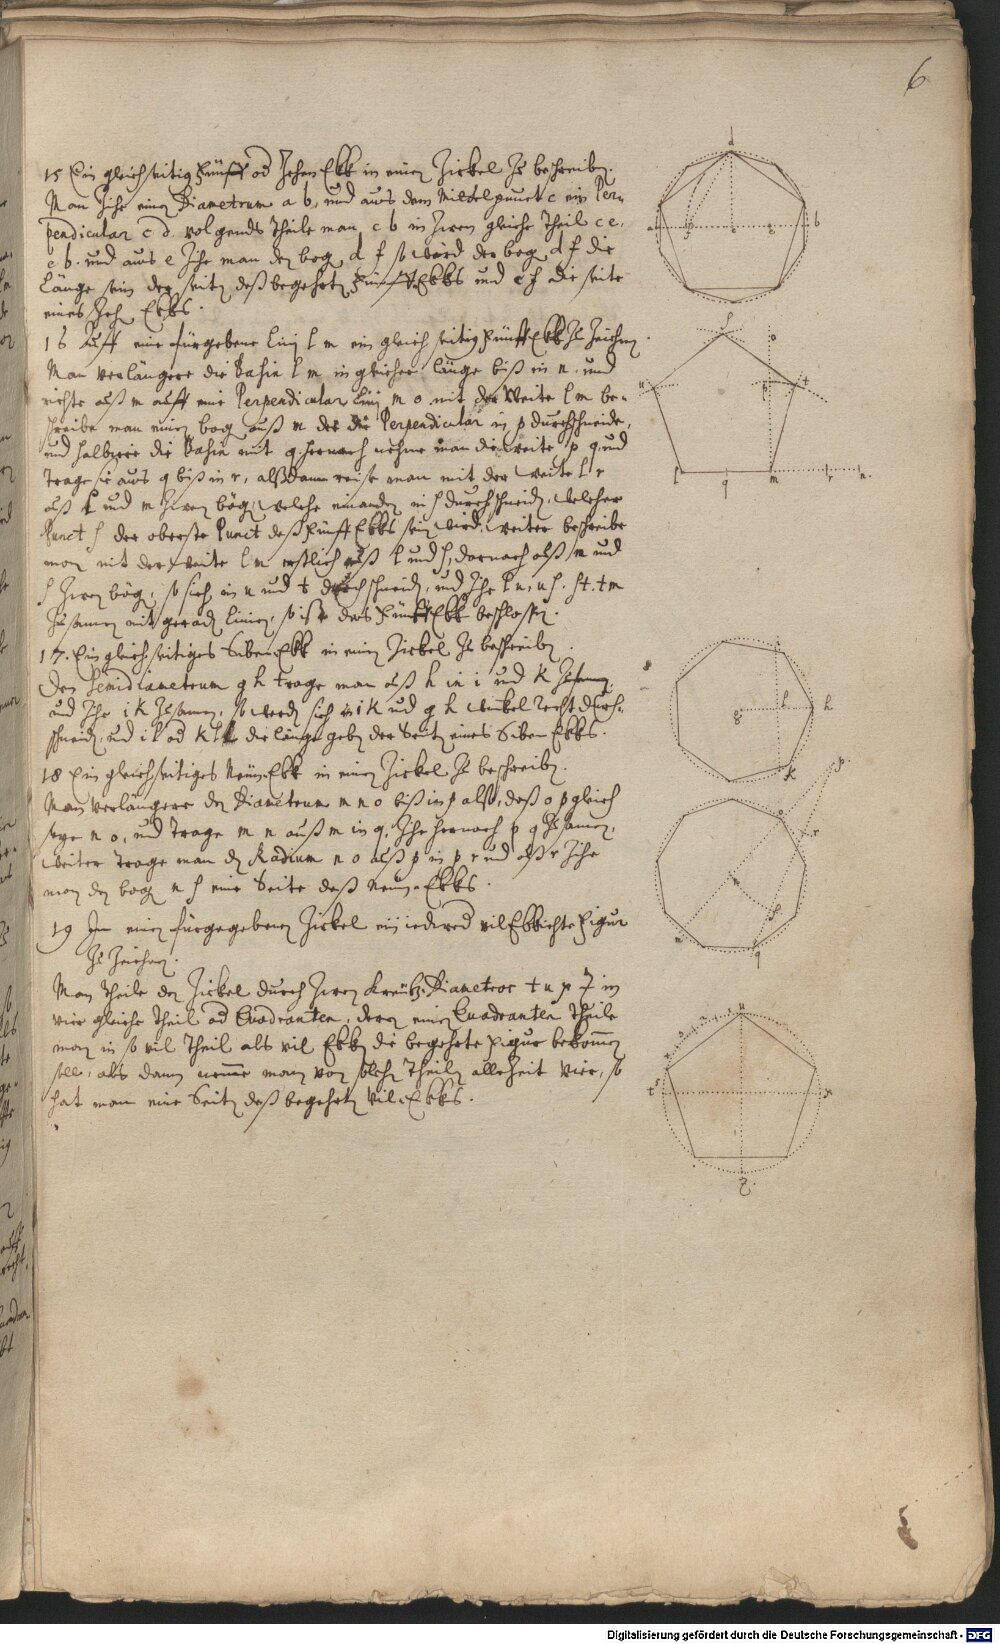 6
15 Ein gleichseitig Fünff od Zehen Ekk in einen Zirkel Zu beschreiben.
Man Zihe einen Diametrum a b. und auss dem Mittelpunct c ein Per-
pendicular c d. volgends Theile man c b in Zwey gleiche Theil c e.
e b. und auss e Zihe man den bog d f so wird der bog d f die
Länge sein der seiten dess begehrten Fünff Ekks und c f die seite
eines Zehen Ekks.
16 Auff eine fürgebene Linj l m ein gleichseitig Fünff Ekk Zu Zeichnen.
Man verlängere die Basin l m in gleicher länge biss in n. und
richte auss m auff eine Perpendicular Linj m o mit der Weite l m be-
schreibe man einen bog auss m der die Perpendicular in p durchschneide,
und halbiere die Basin mit q hernach nehme man die weite p q und
trage sie auss q biss in r, alssdann reisse man mit der weite l r
auss l und m Zwey bög, welche einander in s durchschneiden, welcher
Punct s der oberste Punct dess Fünff Ekks sein wird. weiter beschreibe
man mit der weite l m erstlich auss l und s, darnach auss m und
s Zwey bög, so sich in u und t durchschneiden, und Zihe l u, u s. s t. t m
Zusamen mit geraden Linien, so ist das Fünff Ekk beschlossen.
17. Ein gleichseitiges Siben Ekk in einen Zirkel Zu beschreiben
Den Semidiametrum g h trage man auss h in i und K Zusamen,
und Zihe i K Zusamen, so werden sich i K und g h winkelrecht durch-
schneiden, und i l od K l die länge geben der Seiten eines Siben Ekks.
18 Ein gleichseitiges Neun Ekk in einen Zirkel Zu beschreiben.
Man verlängere den Diametrum m n o biss in p also, dass o p gleich
seye n o, und trage m n auss m in q, Zihe hernach p q Zusamen,
weiter trage man den Radium n o auss p in r und auss r Zihe
man den bog n s eine Seite dess Neun-Ekks.
19 In einen fürgegebenen Zirkel ein iedwed vil Ekkichte Figur
Zu Zeichnen.
Man Theile den Zirkel durch Zwey Kreutz-Diametros t u x Z in
vier gleiche Theil od Quadranten, deren einen Quadranten Theile
man in so vil Theil als vil Ekk die begehrte Figur bekommen
solle, als dann nemme man von solchen Theilen alleZeit vier, so
hat man eine Seiten dess begehrten Vil-Ekks.
d
a f c e b
s
o
u p t
l q m r n
i
g l h
K
p
o
r
n
s
m q
u
t x
Z
Digitalisierung gefördert durch die Deutsche Forschungsgemeinschaft - DFG